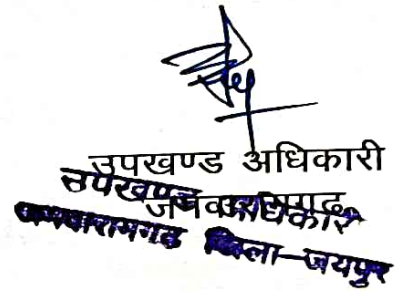 उपखण्ड अधिकारी
जमवारामगढ़
उपखण्ड अधिकारी
जमवारामगढ जिला-जयपुर